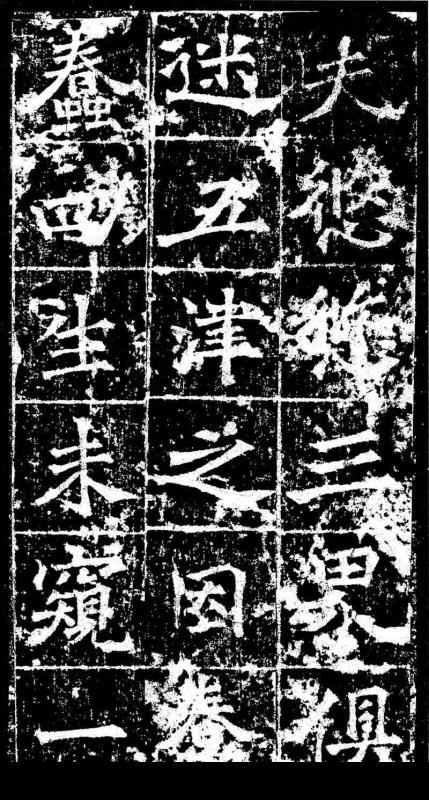 夫悠悠三界俱
迷五津之因蠢
蠢四生未窺一